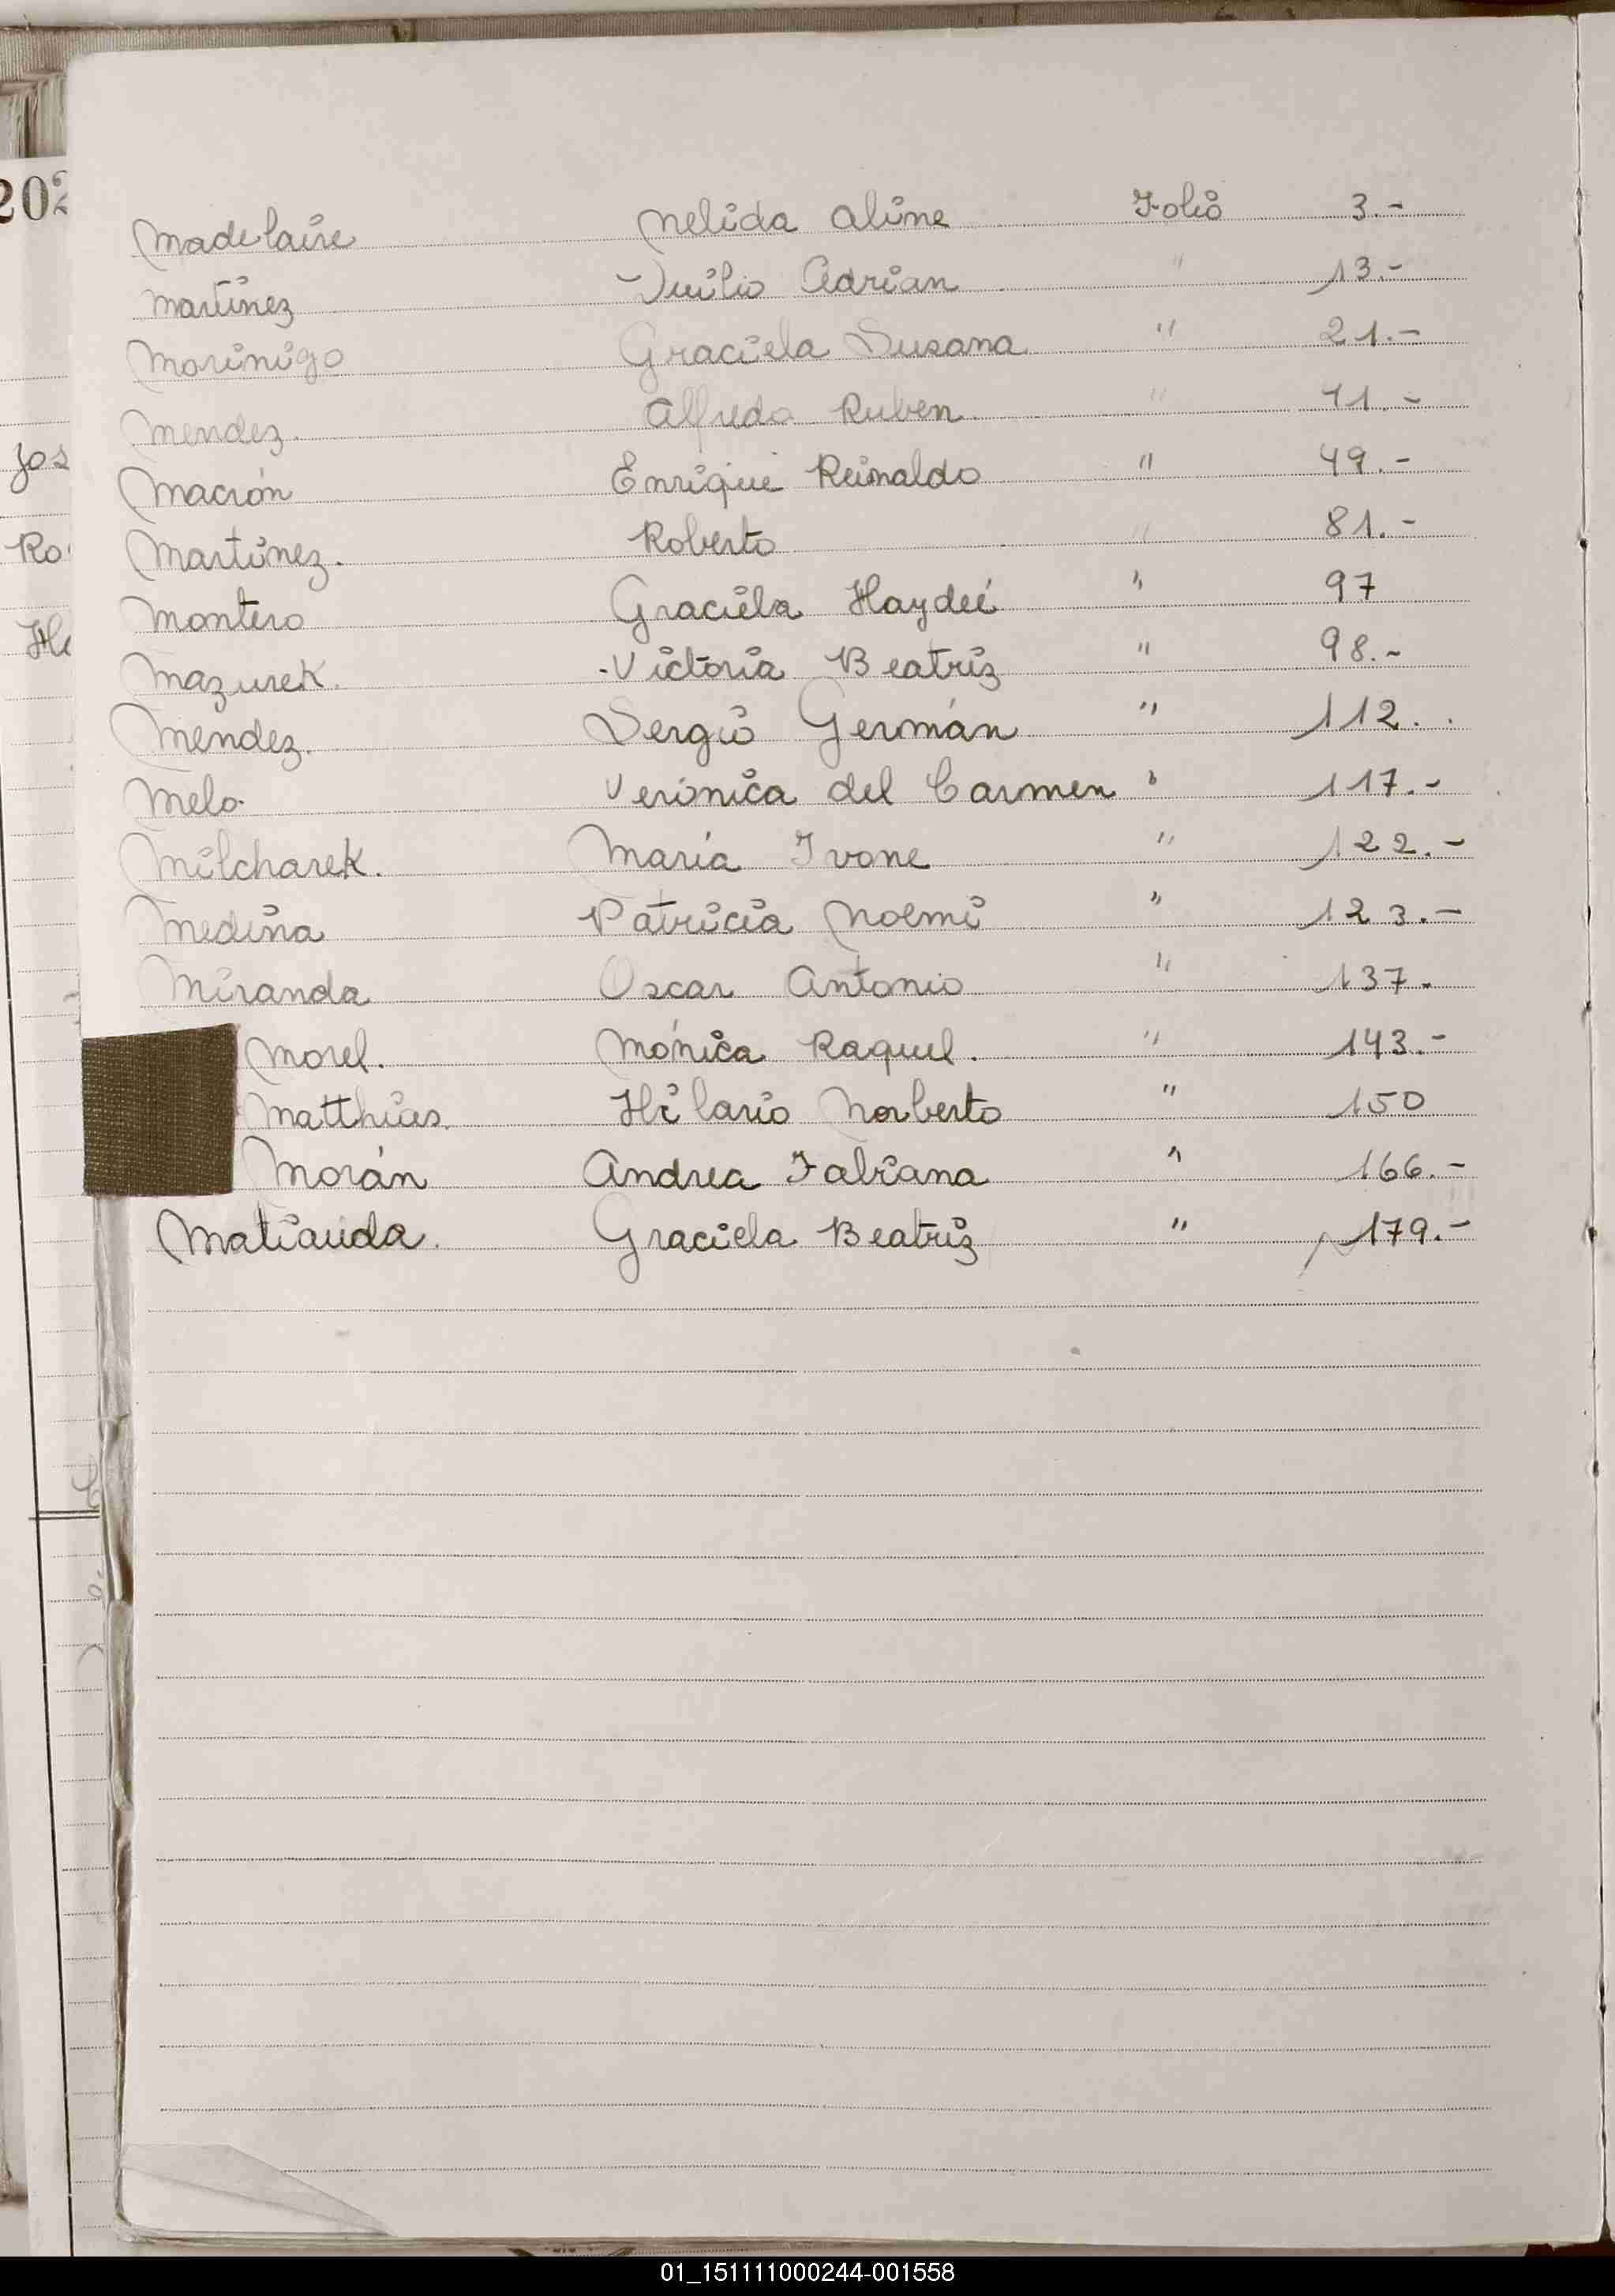 202
Jos
Ro
He
Madelaire Nelida Aline Folio 3.-
Martínez Julio Adrian " 13.-
Morinigo Graciela Susana " 21.-
Mendez. Alfredo Ruben. " 41.-
Mación Enrique Reinaldo " 49.-
Martínez. Roberto " 81.-
Montero Graciela Haydeé " 97
Mazurek. Victoria Beatriz " 98.-
Mendez. Sergio Germán " 112..
Melo. Verónica del Carmen " 117.-
Milcharek. María Ivone " 122.-
Medina Patricia Noemi " 123.-
Miranda Oscar Antonio " 137.
Morel. Mónica Raquel. " 143.-
Matthias. Hilario Norberto " 150
Morán Andrea Fabiana " 166.-
Matiauda. Graciela Beatriz " 179.-
01_151111000244-001558